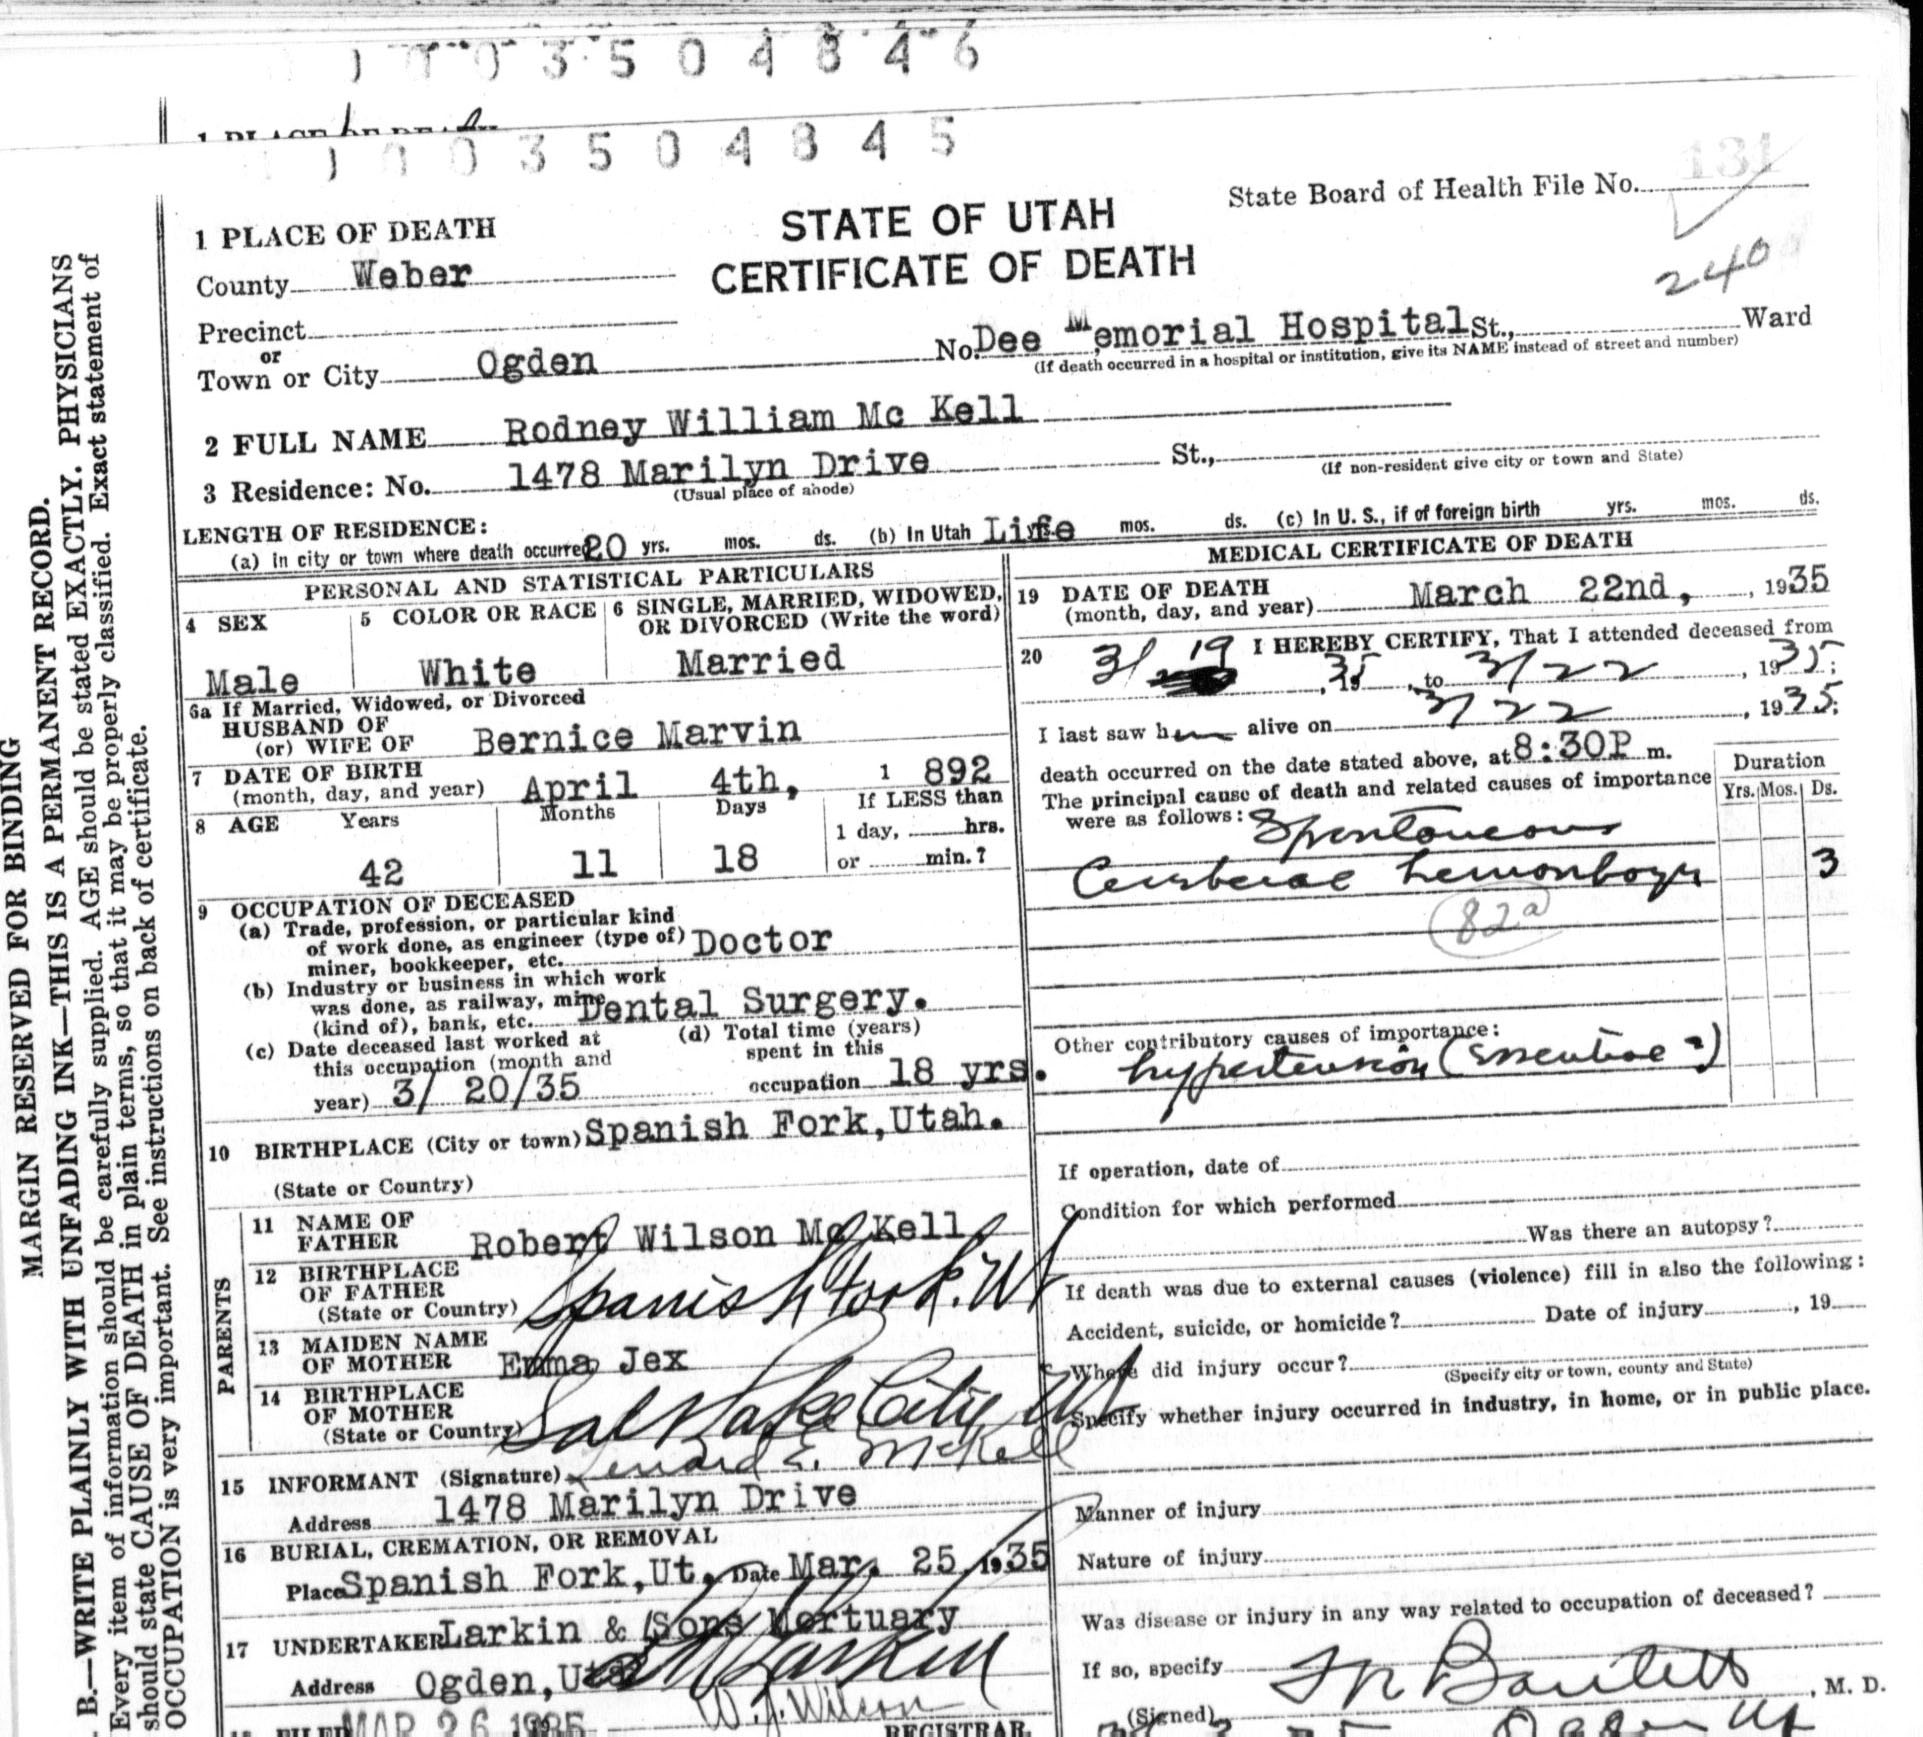 1 0 0 3 5 0 4 8 4 6
1 PLACE OF DEATH
1 0 0 3 5 0 4 8 4 5
131
State Board of Health File No.
240
STATE OF UTAH
CERTIFICATE OF DEATH
1 PLACE OF DEATH
County Weber
Precinct
or
Town or City Ogden No. Dee Memorial Hospital St., Ward
(If death occurred in a hospital or institution, give its NAME instead of street and number)
2 FULL NAME Rodney William Mc Kell
3 Residence: No. 1478 Marilyn Drive St.,
(Usual place of abode) (If non-resident give city or town and State)
LENGTH OF RESIDENCE:
(a) In city or town where death occurred 20 yrs. mos. ds. (b) In Utah Life yrs. mos. ds. (c) In U. S., if of foreign birth yrs. mos. ds.
PERSONAL AND STATISTICAL PARTICULARS
4 SEX
Male
5 COLOR OR RACE
White
6 SINGLE, MARRIED, WIDOWED,
OR DIVORCED (Write the word)
Married
6a If Married, Widowed, or Divorced
HUSBAND OF
(or) WIFE OF Bernice Marvin
7 DATE OF BIRTH
(month, day, and year) April 4th, 1 892
8 AGE Years Months Days If LESS than
1 day, hrs.
42 11 18 or min.?
9 OCCUPATION OF DECEASED
(a) Trade, profession, or particular kind
of work done, as engineer (type of) Doctor
miner, bookkeeper, etc.
(b) Industry or business in which work
was done, as railway, mine Dental Surgery.
(kind of), bank, etc.
(c) Date deceased last worked at
this occupation (month and
year) 3/ 20/35
(d) Total time (years)
spent in this
occupation 18 yrs.
10 BIRTHPLACE (City or town) Spanish Fork,Utah.
(State or Country)
PARENTS
11 NAME OF
FATHER Robert Wilson Mc Kell
12 BIRTHPLACE
OF FATHER
(State or Country) Spanish Fork. Ut
13 MAIDEN NAME
OF MOTHER Emma Jex
14 BIRTHPLACE
OF MOTHER
(State or Country) Salt Lake City Ut
15 INFORMANT (Signature) Lenard E. McKell
Address 1478 Marilyn Drive
16 BURIAL, CREMATION, OR REMOVAL
Place Spanish Fork,Ut. Date Mar. 25, 1935
17 UNDERTAKER Larkin & Sons Mortuary
Address Ogden,Utah Larkin
FILED MAR 26 1935 W. J. Wilson
REGISTRAR.
MEDICAL CERTIFICATE OF DEATH
19 DATE OF DEATH
(month, day, and year) March 22nd, , 1935
20 I HEREBY CERTIFY, That I attended deceased from
3/ 19 , 1935 , to 3/22 , 1935;
I last saw him alive on 3/22 , 1935;
death occurred on the date stated above, at 8:30P m.
The principal cause of death and related causes of importance
were as follows: Spontaneous
Cerebral hemorrhage 3
82a
Duration
Yrs. Mos. Ds.
Other contributory causes of importance:
hypertension (essential ?)
If operation, date of
Condition for which performed
Was there an autopsy?
If death was due to external causes (violence) fill in also the following:
Accident, suicide, or homicide? Date of injury , 19
Where did injury occur?
(Specify city or town, county and State)
Specify whether injury occurred in industry, in home, or in public place.
Manner of injury
Nature of injury
Was disease or injury in any way related to occupation of deceased?
If so, specify
(Signed) Bartlett , M. D.
Ogden Ut
MARGIN RESERVED FOR BINDING
B.—WRITE PLAINLY WITH UNFADING INK—THIS IS A PERMANENT RECORD.
Every item of information should be carefully supplied. AGE should be stated EXACTLY. PHYSICIANS
should state CAUSE OF DEATH in plain terms, so that it may be properly classified. Exact statement of
OCCUPATION is very important. See instructions on back of certificate.